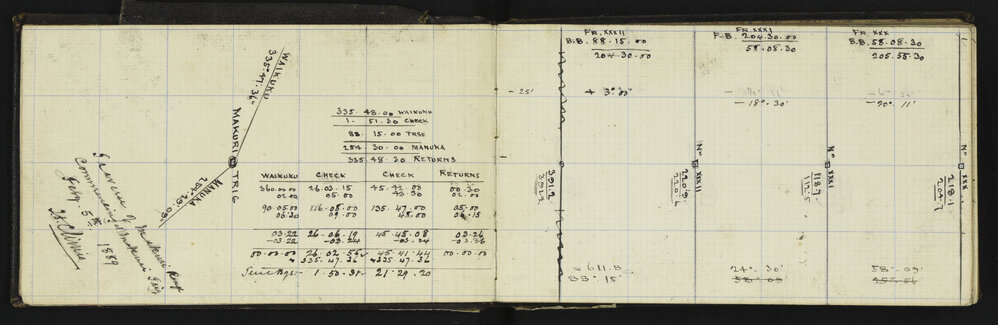 WAIKUKU
335°.47'.36"
MAKURI TRIG
MANUKA
254°.29'.08"
Traverse of Makuri Road
Commencing
Feby 5th 1889
335. 48.00 WAIKUKU
1. 51.30 CHECK
88. 15.00 TRSE
254 30.00 MANUKA
335 48.30 RETURNS
WAIKUKU CHECK CHECK RETURNS
360.00.00 26.03.15 45.42.00 00.30
02.00 43.30 02.00
90.05.00 116.08.00 135.47.00 05.00
06.30 09.00 48.00 06.15
03.22 26.06.19 45.45.08 03.26
-03.22 -03.24 -03.24 -03.26
00.00.00 26.02.56 45.41.44 00.00.00
+335.47.36 +335.47.36
1.50.31 21.29.20
FR. XXXII
B.B. 88.15.00
204.30.00
- 25'
+ 3°.00'
391.2
391.2
- 611.8
88° 15'
FR. XXXI
F.B. 204.30.00
58.08.30
- 18°.30'
No XXXII
220.9
220.6
24°. 30'
58° 09'
FR. XXX
B.B. 58.08.30
205.55.30
- 20°. 11'
No XXXI
118.7
112.5
58°. 09'
No XXX
218.1
204.7